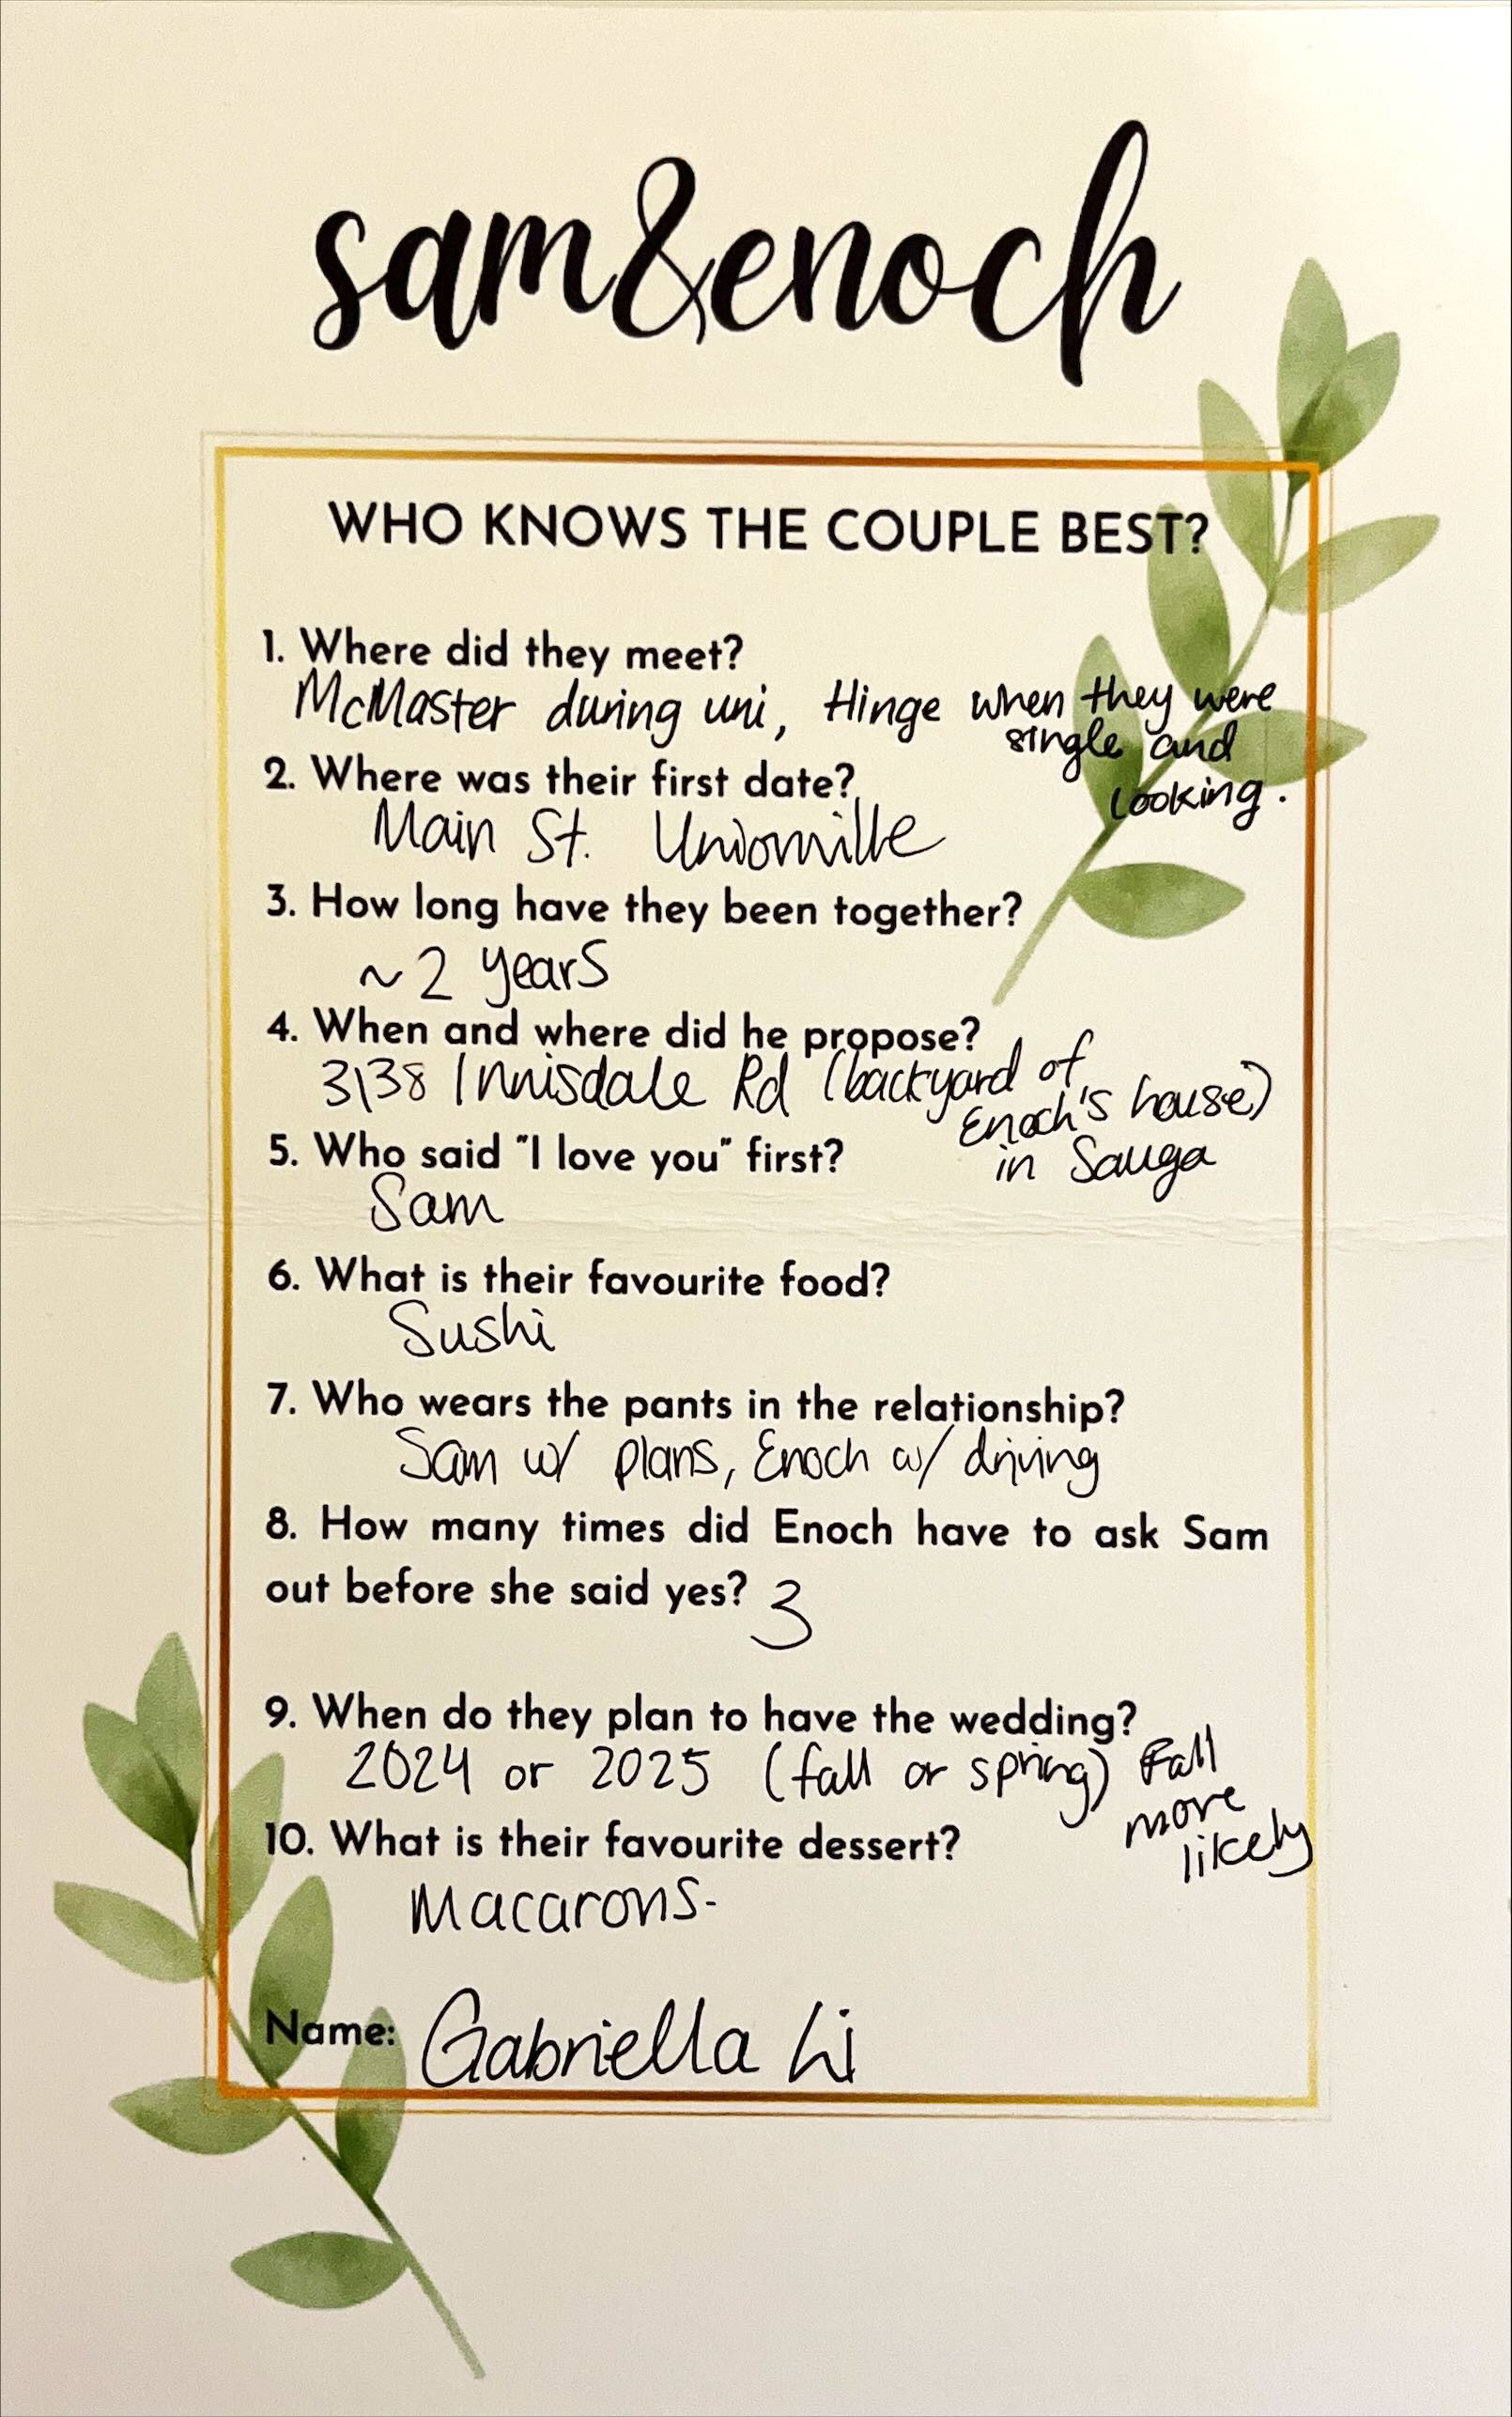 sam&enoch
WHO KNOWS THE COUPLE BEST?
1. Where did they meet?
McMaster during uni, Hinge when they were
single and
looking.
2. Where was their first date?
Main St. Unionville
3. How long have they been together?
~2 years
4. When and where did he propose?
3138 Innisdale Rd (backyard of
Enoch's house)
in Sauga
5. Who said "I love you" first?
Sam
6. What is their favourite food?
Sushi
7. Who wears the pants in the relationship?
Sam w/ plans, Enoch w/ driving
8. How many times did Enoch have to ask Sam
out before she said yes? 3
9. When do they plan to have the wedding?
2024 or 2025 (fall or spring) Fall
more
likely
10. What is their favourite dessert?
Macarons.
Name: Gabriella Li